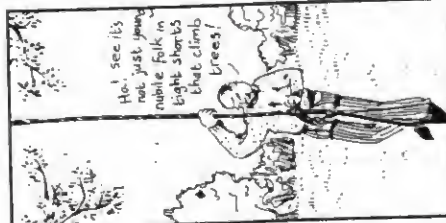 Ha! I see it's
not just young
nubile folk in
tight shorts
that climb
trees!